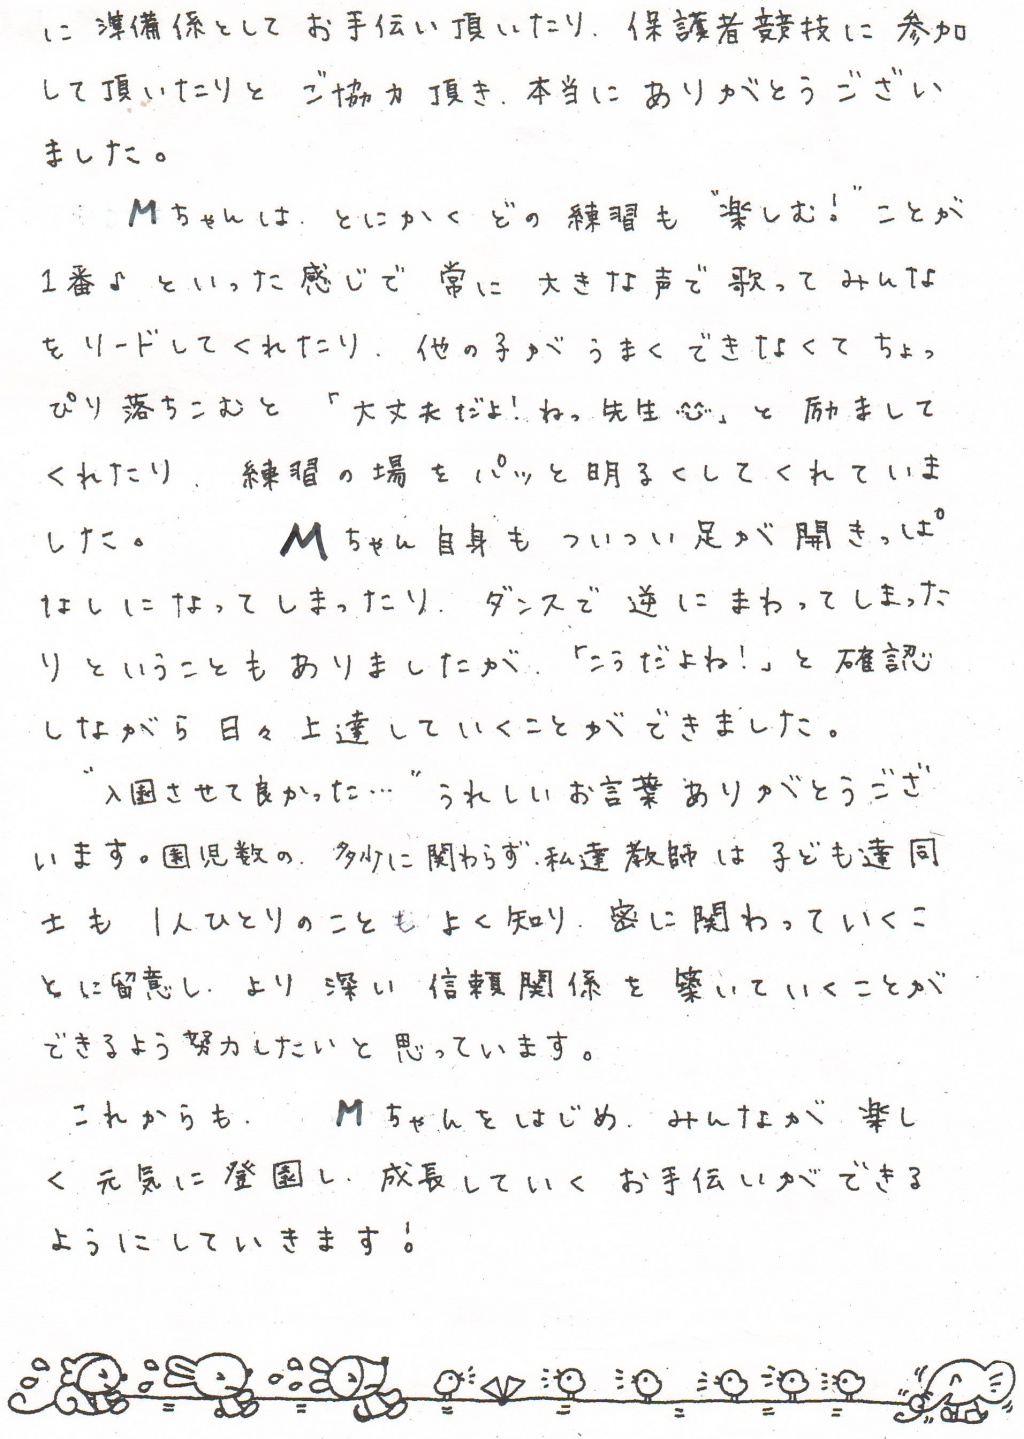 に準備係としてお手伝い頂いたり、保護者競技に参加
して頂いたりとご協力頂き、本当にありがとうござい
ました。
Mちゃんは、とにかくどの練習も“楽しむ!”ことが
1番♪といった感じで常に大きな声で歌ってみんな
をリードしてくれたり、他の子がうまくできなくてちょっ
ぴり落ちこむと「大丈夫だよ!ねっ先生」と励まして
くれたり、練習の場をパッと明るくしてくれていま
した。Mちゃん自身もついつい足が開きっぱ
なしになってしまったり、ダンスで逆にまわってしまった
りということもありましたが、「こうだよね!」と確認
しながら日々上達していくことができました。
“入園させて良かった…”うれしいお言葉ありがとうござ
います。園児数の、多少に関わらず、私達教師は子ども達同
士も1人ひとりのこともよく知り、密に関わっていくこ
とに留意し、より深い信頼関係を築いていくことが
できるよう努力したいと思っています。
これからも、Mちゃんをはじめ、みんなが楽し
く元気に登園し、成長していくお手伝いができる
ようにしていきます!